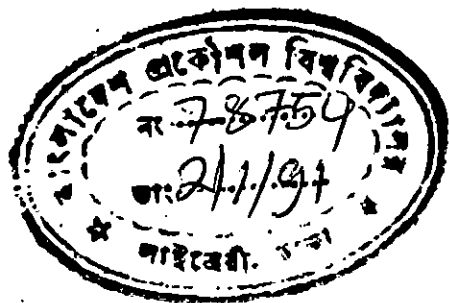 বাংলাদেশ প্রকৌশল বিশ্ববিদ্যালয়
নং 78754
তাং 2/1/91
লাইব্রেরী. ঢাকা